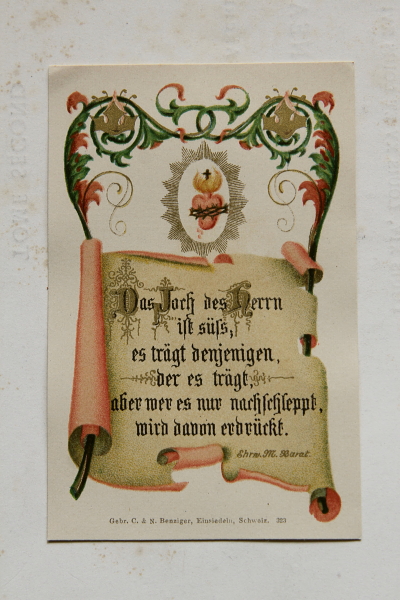 Das Joch des Herrn
ist süss,
es trägt denjenigen,
der es trägt,
aber wer es nur nachschleppt,
wird davon erdrückt.
Ehrw. M. Barat.
Gebr. C. & N. Benziger, Einsiedeln, Schweiz. 323